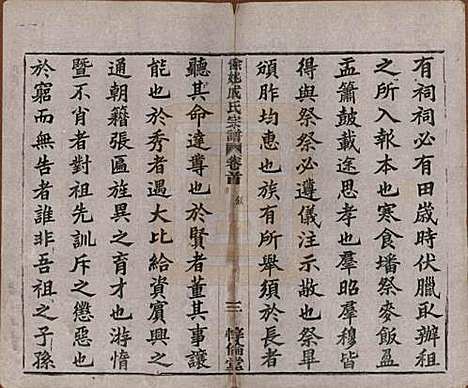 有祠祠必有田歲時伏臘取辦租
之所入報本也寒食墦祭麥飯盈
盂簫鼓載途思孝也羣昭羣穆皆
得與祭祭必遵儀注示敬也祭畢
頒胙均惠也族有所舉須於長者
餘姚戚氏宗譜 卷首 敘 三 惇倫堂
聽其命達尊也於賢者董其事讓
能也於秀者遇大比給資賓興之
通朝籍張區旌異之育才也游惰
暨不肖者對祖先訓斥之懲惡也
於窮而無告者誰非吾祖之子孫